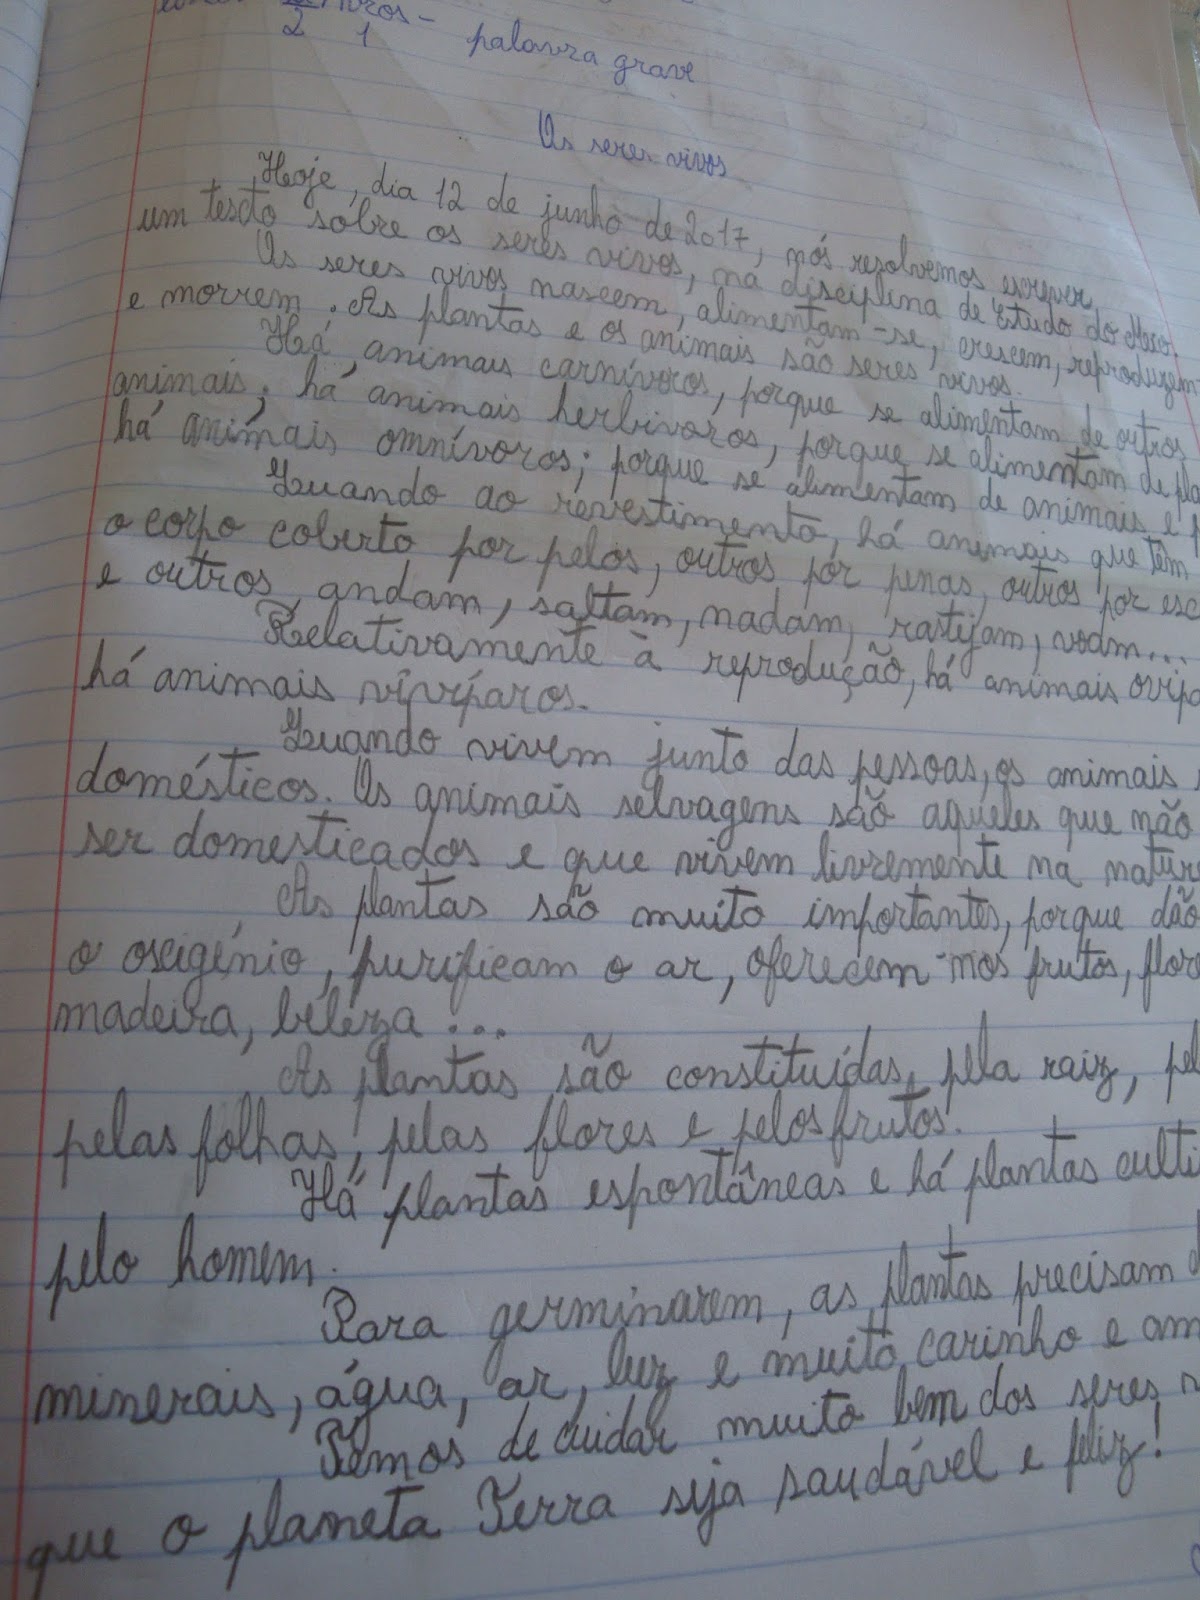 2 1 palavra grave
Os seres vivos
Hoje, dia 12 de junho de 2017, nós resolvemos escrever
um texto sobre os seres vivos, na disciplina de Estudo do Meio.
Os seres vivos nascem, alimentam-se, crescem, reproduzem
e morrem. As plantas e os animais são seres vivos.
Há animais carnívoros, porque se alimentam de outros
animais; há animais herbívoros, porque se alimentam de pla
há animais omnívoros; porque se alimentam de animais e p
Quando ao revestimento, há animais que têm
o corpo coberto por pelos, outros por penas, outros por esc
e outros andam, saltam, nadam, rastijam, voam...
Relativamente à reprodução, há animais ovípa
há animais vivíparos.
Quando vivem junto das pessoas, os animais
domésticos. Os animais selvagens são aqueles que não
ser domesticados e que vivem livremente na nature
As plantas são muito importantes, porque dão
o oxigénio, purificam o ar, oferecem-nos frutos, flore
madeira, beleza...
As plantas são constituídas, pela raiz, pel
pelas folhas, pelas flores e pelos frutos.
Há plantas espontâneas e há plantas culti
pelo homem.
Para germinarem, as plantas precisam d
minerais, água, ar, luz e muito carinho e am
Temos de cuidar muito bem dos seres
que o planeta Terra seja saudável e feliz!